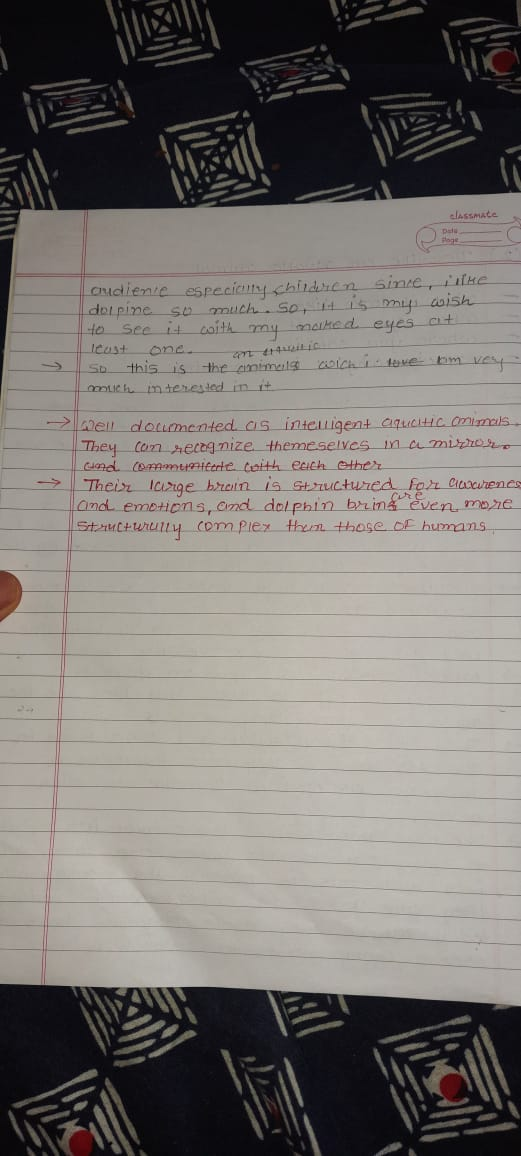 classmate
Date
Page
audience especially children since, i like
dolpine so much. So, it is my wish
to see it with my naked eyes at
least one.
an aquaitic
→ so this is the animals wich i love um very
much interested in it
→ Well documented as intelligent aquatic animals.
They can recognize themeselves in a mirror.
and communicate with each other
→ Their large brain is structured for awarenes
and emotions, and dolphin brins are even more
structurally complex then those of humans.